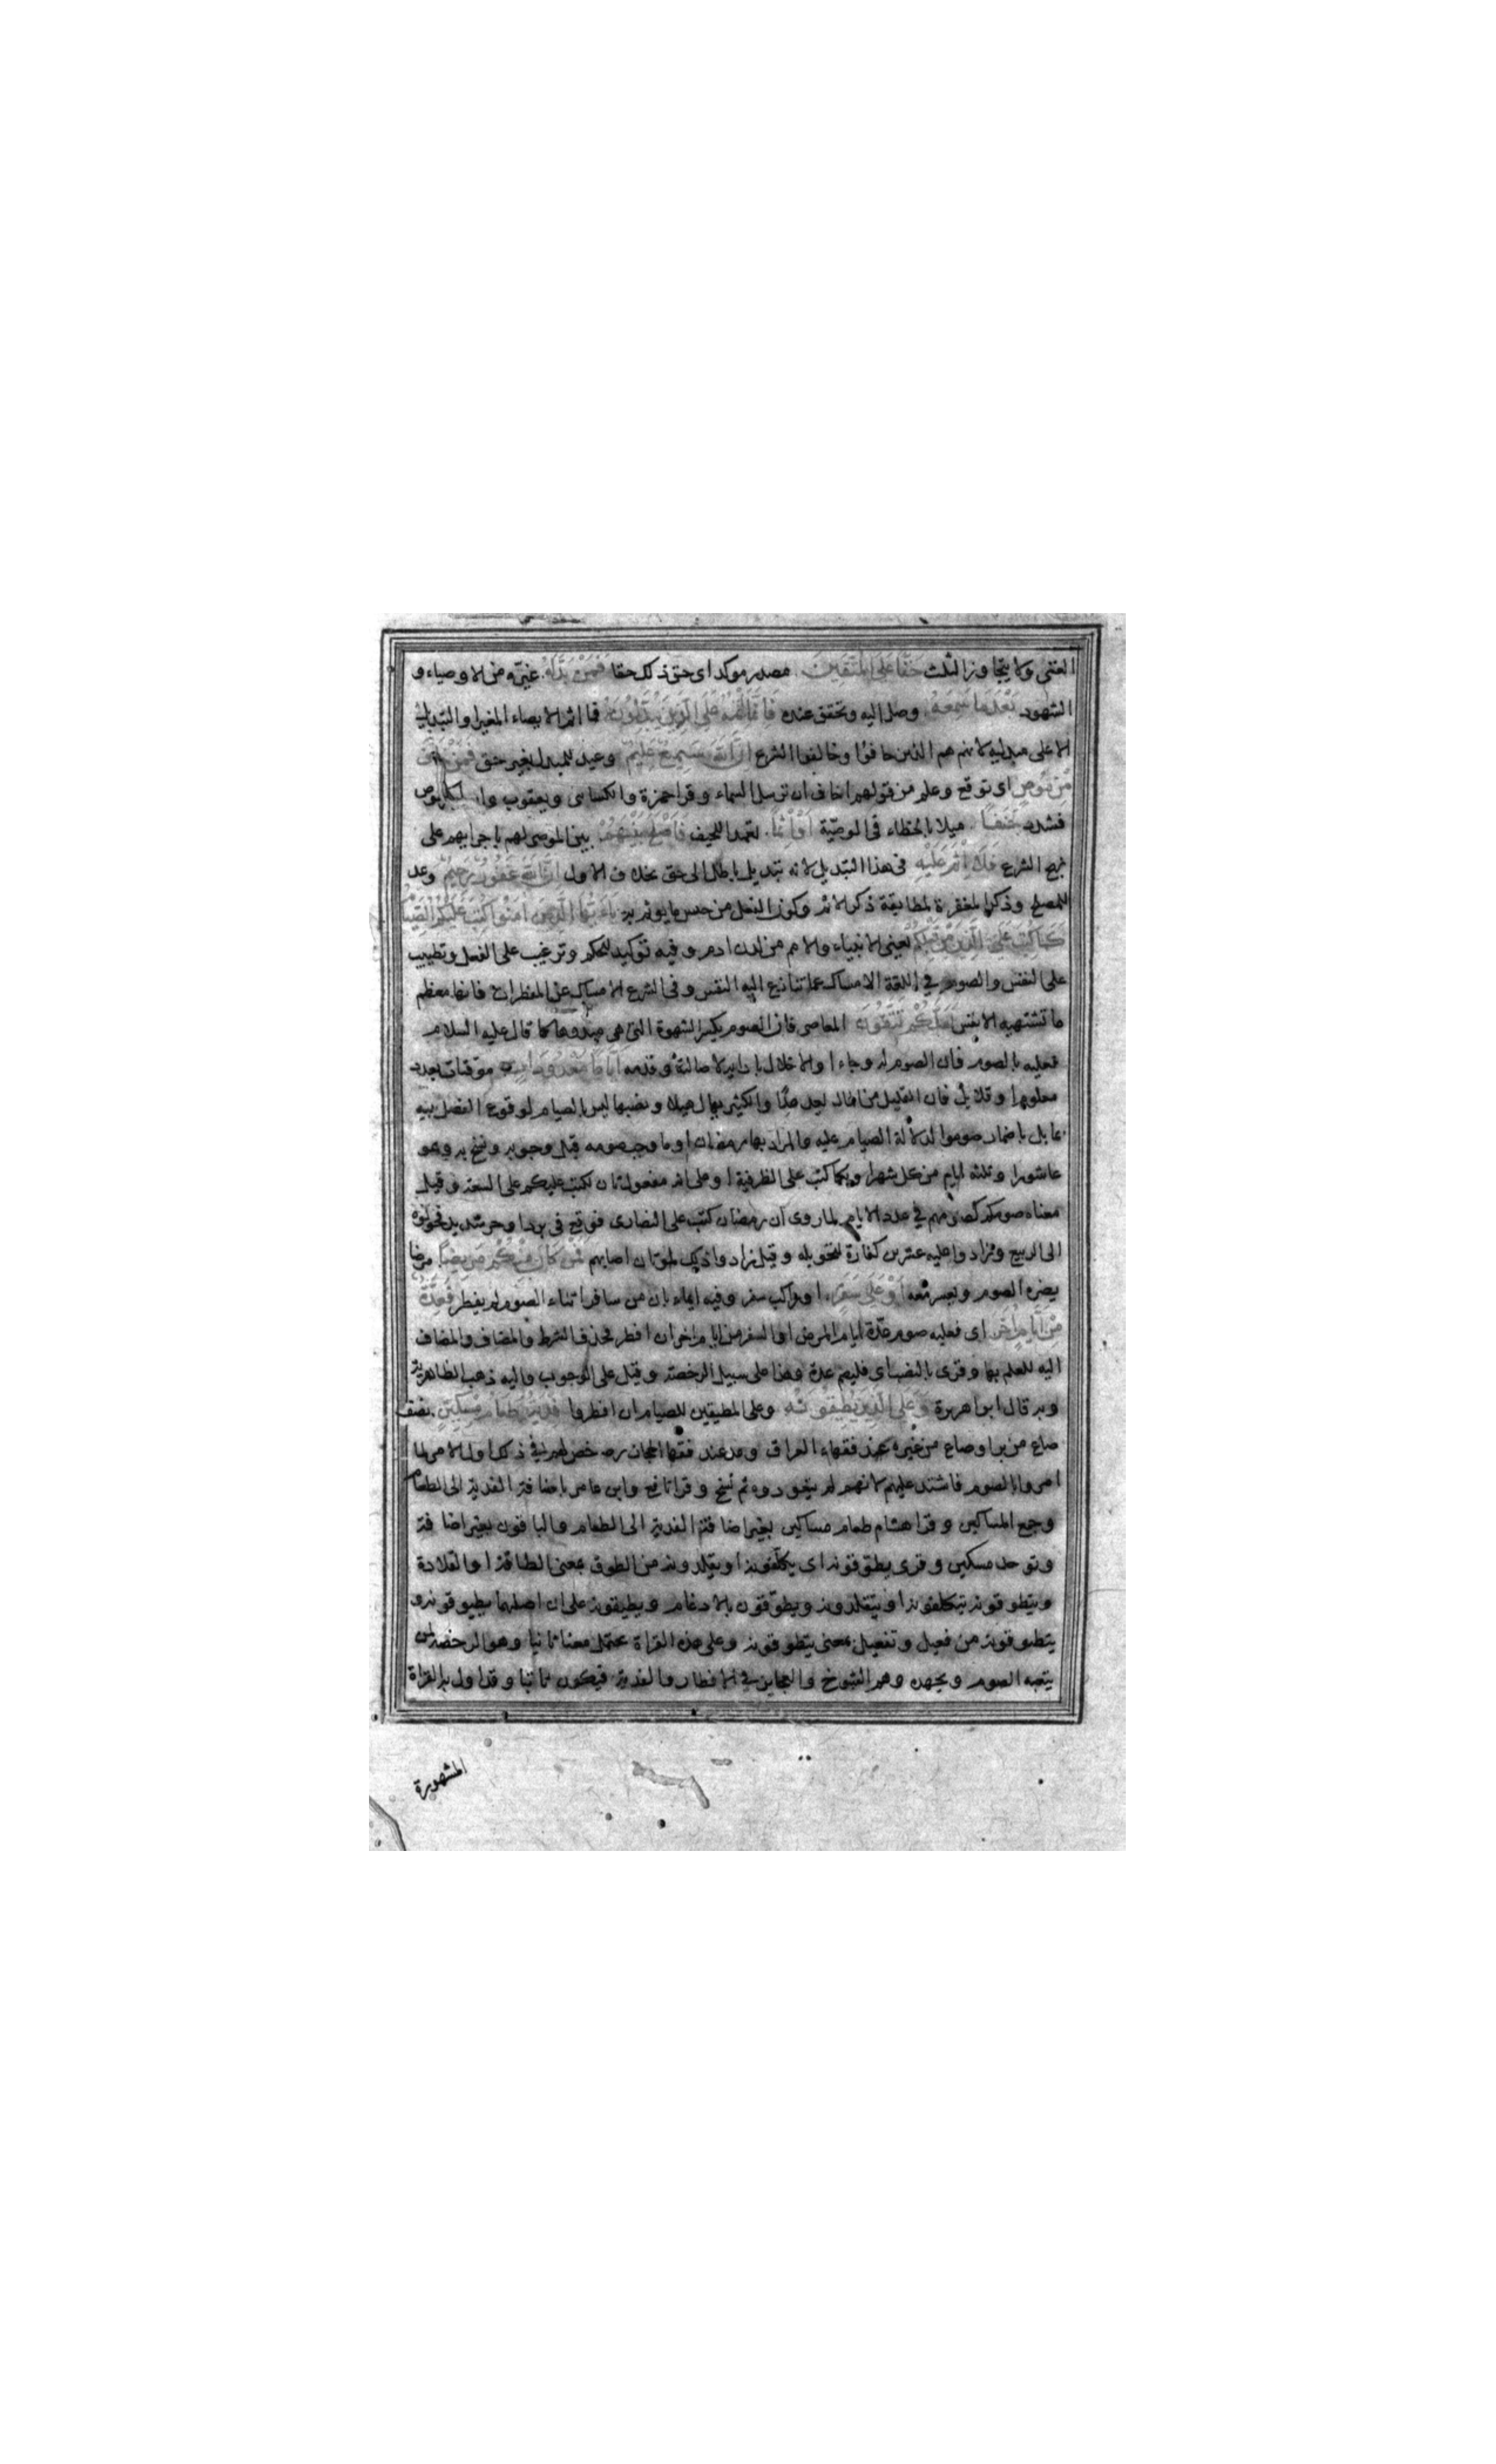 الغنى ولا يتجاوز الثلث حَقًّا عَلَى الْمُتَّقِينَ مصدر موكد اى حق ذلك حقا فَمَنْ بَدَّلَهُ غيّره من الاوصياء و
الشهود بَعْدَمَا سَمِعَهُ وصل اليه وتحقق عنده فَإِنَّمَا إِثْمُهُ عَلَى الَّذِينَ يُبَدِّلُونَهُ فما اثم الايصاء المغير او التبديل
الا على مبدليه لانهم هم الذين خافوا وخالفوا الشرع إِنَّ اللَّهَ سَمِيعٌ عَلِيمٌ وعيد للمبدل بغير حق فَمَنْ خَافَ
مِنْ مُوصٍ اى توقع وعلم من قولهم اخاف ان ترسل السماء وقرا حمزة والكسائى ويعقوب وابوبكر موص
مشدد جَنَفًا ميلا بالخطاء فى الوصية أَوْ إِثْمًا تعمدا للحيف فَأَصْلَحَ بَيْنَهُمْ بين الموصى لهم باجرائهم على
نهج الشرع فَلَا إِثْمَ عَلَيْهِ فى هذا التبديل لانه تبديل باطل الى حق بخلاف الاول إِنَّ اللَّهَ غَفُورٌ رَحِيمٌ وعد
للمصلح وذكر المغفرة لمطابقة ذكر الاثم وكون الفعل من جنس ما يوثم به يَا أَيُّهَا الَّذِينَ آمَنُوا كُتِبَ عَلَيْكُمُ الصِّيَامُ
كَمَا كُتِبَ عَلَى الَّذِينَ مِنْ قَبْلِكُمْ يعنى الانبياء والامم من لدن ادم وفيه توكيد للحكم وترغيب على الفعل وتطييب
على النفس والصوم في اللغة الامساك عما تنازع اليه النفس وفى الشرع الامساك عن المفطرات فانها معظم
ما تشتهيه الانفس لَعَلَّكُمْ تَتَّقُونَ المعاصى فان الصوم يكسر الشهوة التى هى مبدوها كما قال عليه السلام
فعليه بالصوم فان الصوم له وجاء او الاخلال بادائه لاصالته وقدمه أَيَّامًا مَعْدُودَاتٍ موقتات بعدد
معلوم او قلائل فان القليل من المال يعد عدّا والكثير يهال هيلا ونصبها ليس بالصيام لوقوع الفصل بينه
ما بل باضمار صوموا لدلالة الصيام عليه والمراد بها رمضان او ما وجب صومه قبل وجوبه ونسخ به وهو
عاشورا وثلثة ايام من كل شهر او بكما كتب على الظرفية او على انه مفعول ثان لكتب عليكم على السعة وقيل
معناه صومكم كصومهم في عدد الايام لما روى ان رمضان كتب على النصارى فوقع فى برد او حر شديد فحولوه
الى الربيع وزادوا عليه عشرين كفارة لتحويله وقيل زادوا ذلك لموتان اصابهم فَمَنْ كَانَ مِنْكُمْ مَرِيضًا مرضا
يضره الصوم ويعسر معه أَوْ عَلَى سَفَرٍ او راكب سفر وفيه ايماء بان من سافر اثناء الصوم لم يفطر فَعِدَّةٌ
مِنْ أَيَّامٍ أُخَرَ اى فعليه صوم عدة ايام المرض او السفر من ايام اخر ان افطر فحذف الشرط والمضاف والمضاف
اليه للعلم بها وقرى بالنصب اى فليصم عدة وهذا على سبيل الرخصة وقيل على الوجوب واليه ذهب الظاهرية
وبه قال ابو اهريرة وَعَلَى الَّذِينَ يُطِيقُونَهُ وعلى المطيقين للصيام ان افطروا فِدْيَةٌ طَعَامُ مِسْكِينٍ نصف
صاع من بر او صاع من غيره عند فقهاء العراق ومد عند فقها الحجاز رخص لهم في ذلك اول الامر لما
امروا بالصوم فاشتد عليهم لانهم لم يتعودوه ثم نسخ وقرا نافع وابن عامر باضافة الفدية الى الطعام
وجمع المساكين وقرا هشام طعام مساكين بغير اضافة الفدية الى الطعام والباقون بغير اضافة
وتوحد مسكين وقرى يطوقونه اى يكلفونه او يقلدونه من الطوق بمعنى الطاقة او القلادة
ويتطوقونه يتكلفونه او يتقلدونه ويطوقون بالادغام ويطيقونه على ان اصلهما يطيوقونه و
يتطيوقونه من فعيل وتفعيل بمعنى يتطوقونه وعلى هذه القراة يحتمل معنا ثانيا وهو الرخصة لمن
يتعبه الصوم ويجهده وهم الشيوخ والعجايز في الافطار والفدية فيكون ثابتا وقد اول به القراة
المشهورة